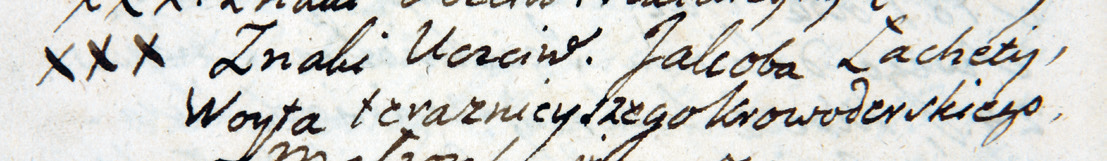 xxx Znaki Uczciw. Jakoba Zachęty,
Woyta teraznieyszego krowoderskiego,